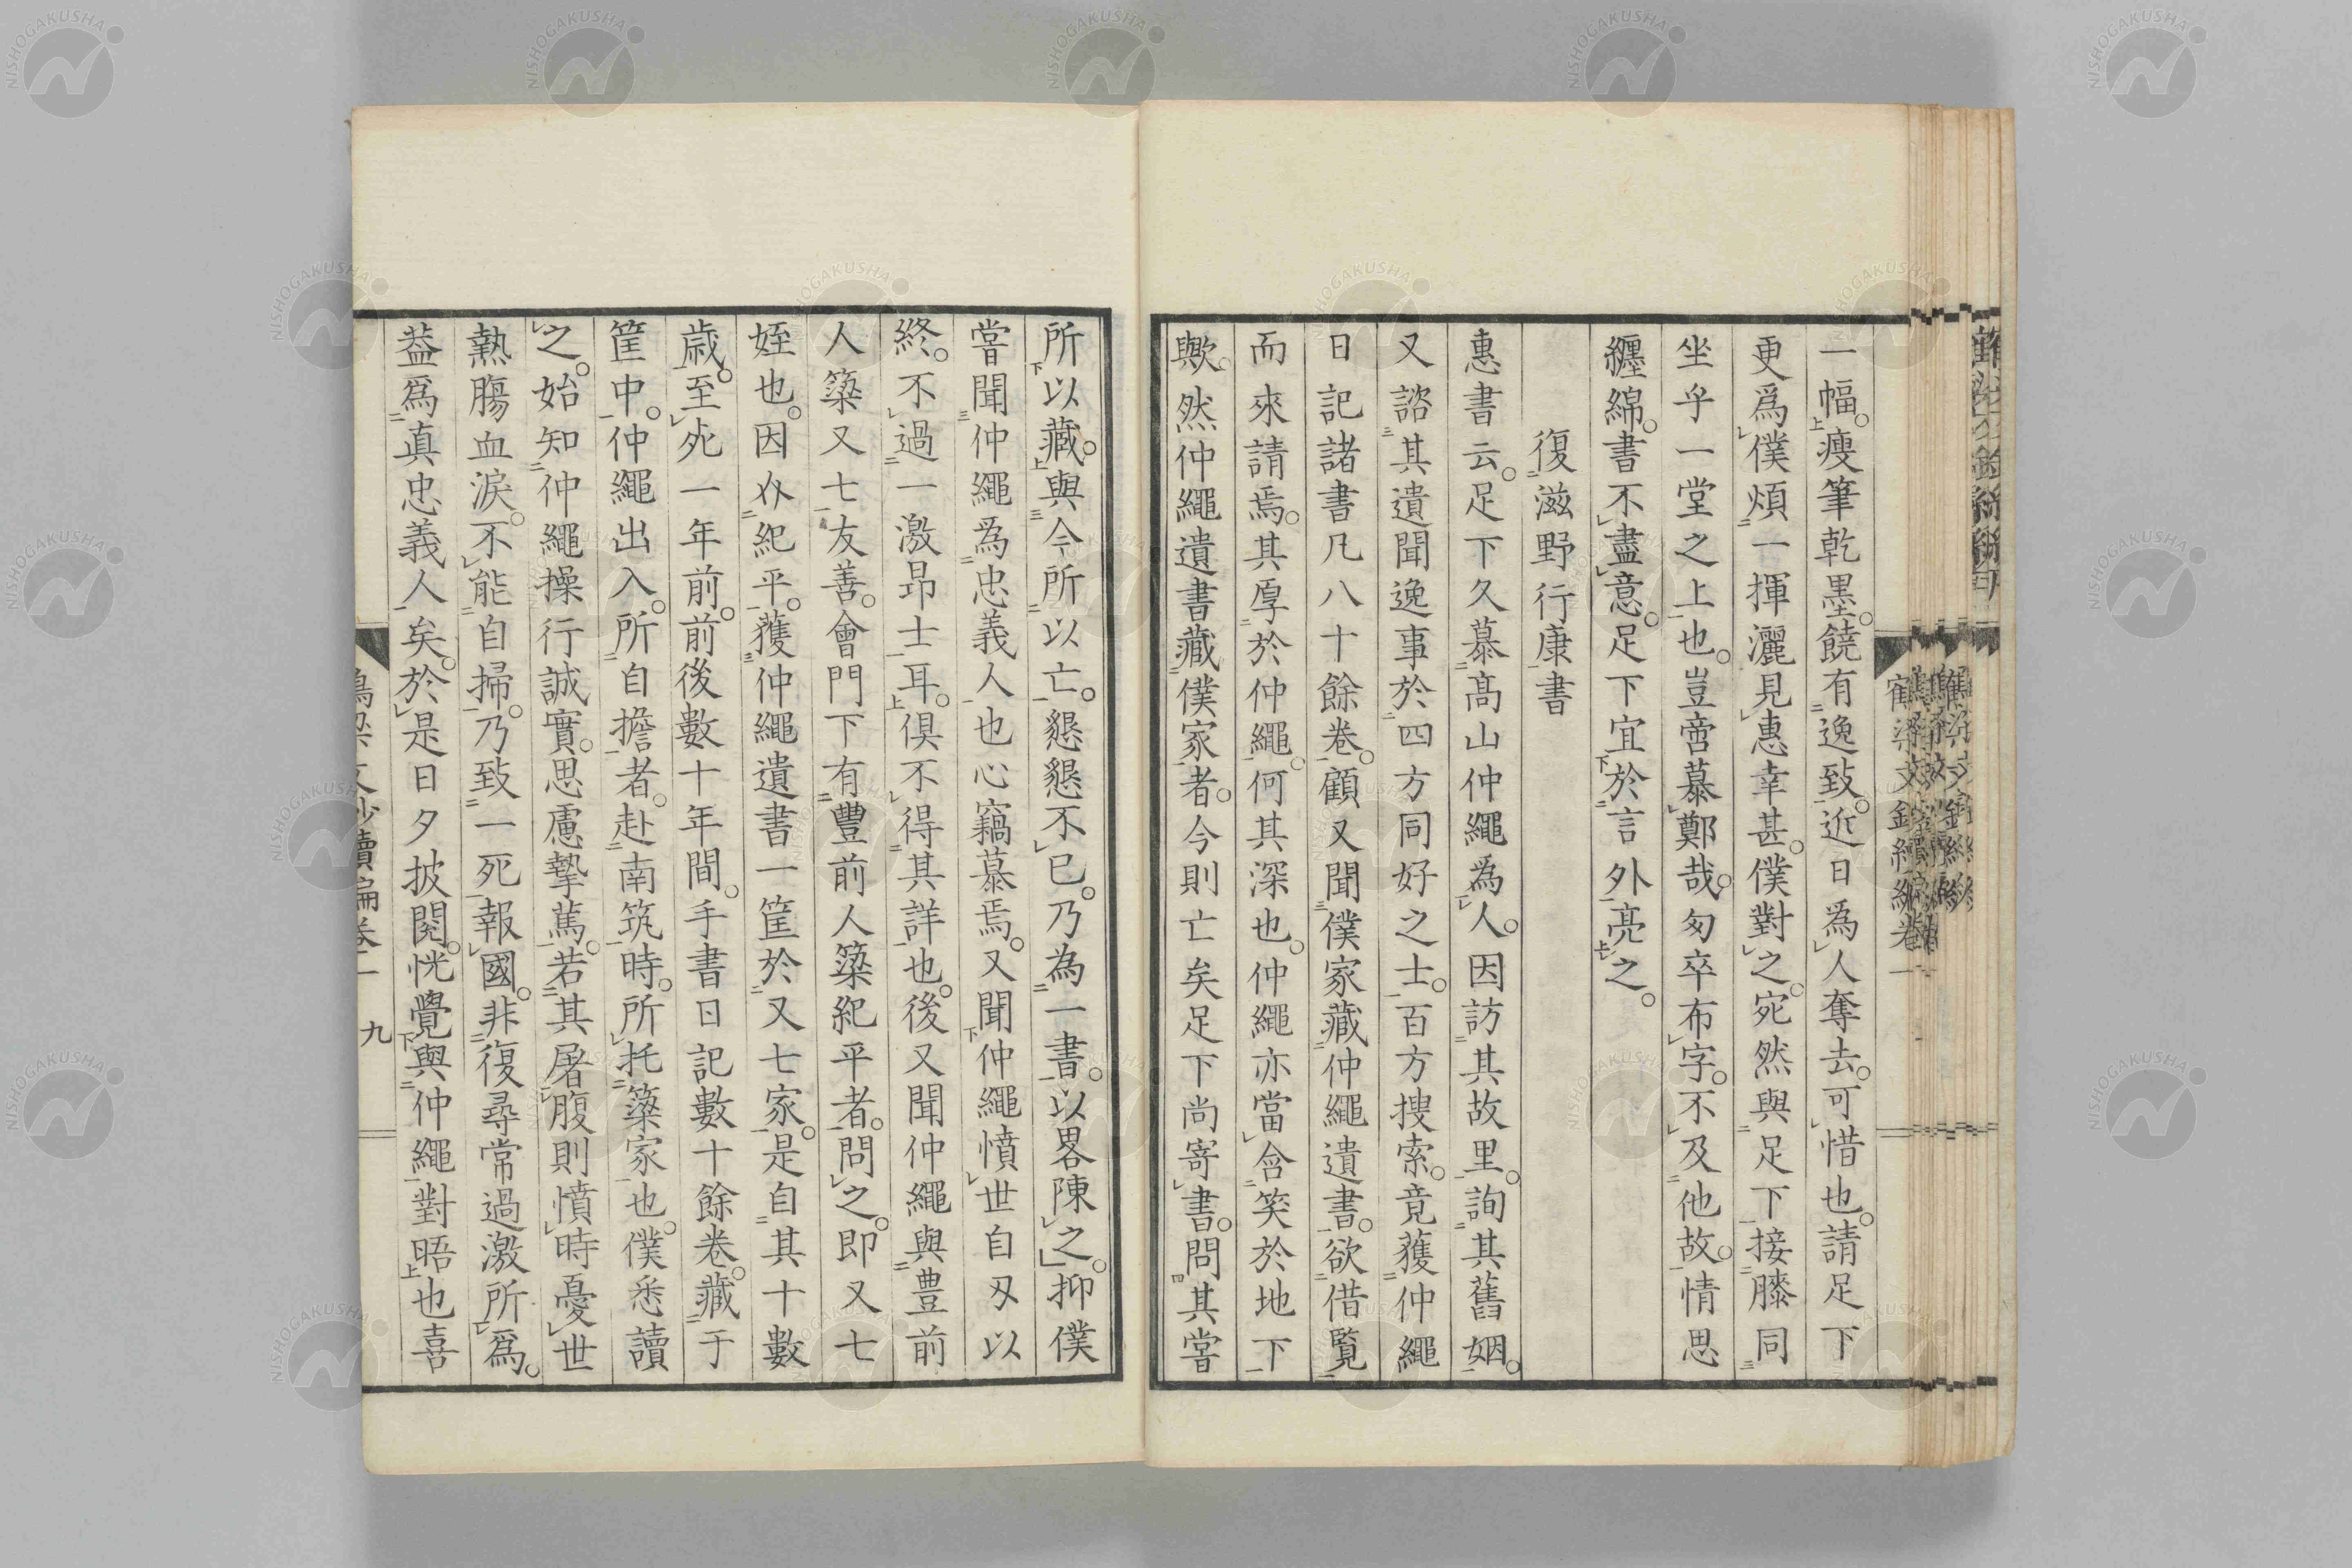 一幅。瘦筆乾墨。饒有逸致。近日為人奪去。可惜也。請足下
更爲僕煩一揮灑見惠幸甚。僕對之。宛然與足下接膝同
坐乎一堂之上也。豈啻慕鄭哉。匆卒布字。不及他故。情思
纒綿。書不盡意。足下宜於言外亮之。
復滋野行康書
惠書云。足下久慕高山仲繩為人。因訪其故里。詢其舊姻。
又諮其遺聞逸事於四方同好之士。百方搜索。竟獲仲繩
日記諸書凡八十餘卷。顧又聞僕家藏仲繩遺書。欲借覧
而來請焉。其厚於仲繩。何其深也。仲繩亦當含笑於地下
歟。然仲繩遺書藏僕家者。今則亡矣足下尚寄書。問其嘗
所以藏。與今所以亡。懇懇不已。乃為一書。以畧陳之。抑僕
嘗聞仲繩為忠義人也心竊慕焉。又聞仲繩憤世自刄以
終。不過一激昂士耳。俱不得其詳也。後又聞仲繩與豊前
人簗又七友善。會門下有豐前人簗紀平者。問之。即又七
姪也。因介紀平。獲仲繩遺書一筐於又七家。是自其十數
歳。至死一年前。前後數十年間。手書日記數十餘卷。藏于
筐中。仲繩出入。所自擔者。赴南筑時。所托簗家也。僕悉讀
之。始知仲繩操行誠實。思慮摯篤。若其屠腹則憤時憂世
熱膓血淚。不能自掃。乃致一死報國。非復尋常過激所爲。
益爲真忠義人矣。於是日夕披閲。恍覺與仲繩對晤也喜
九